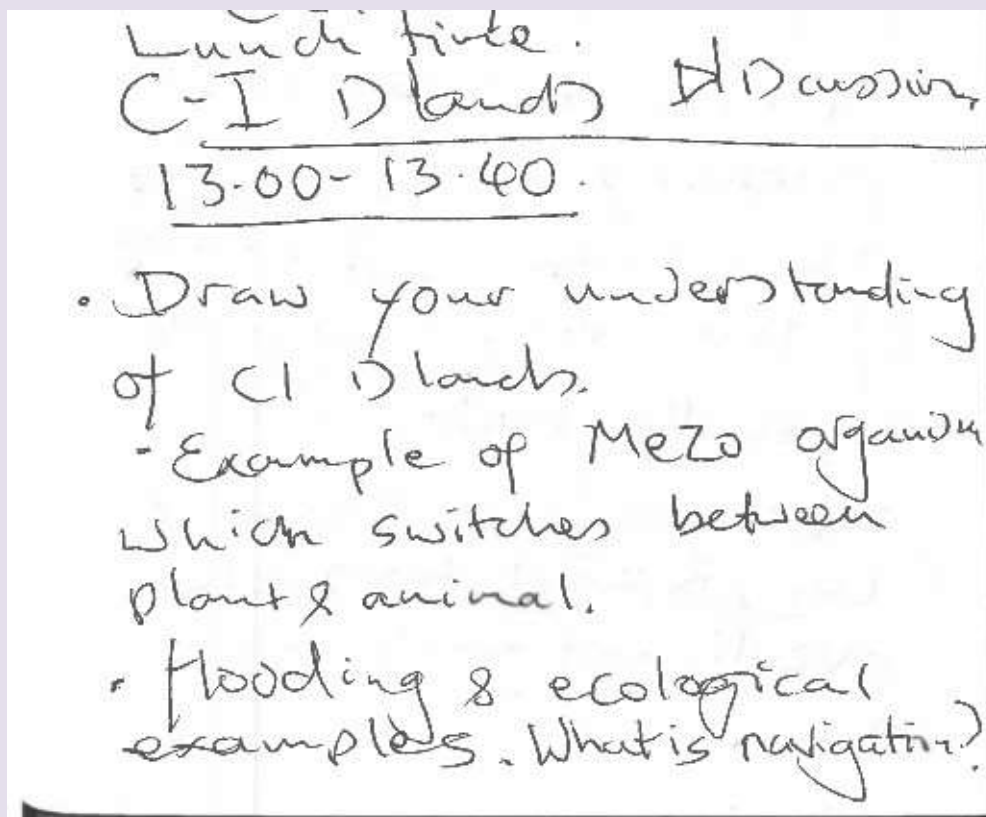 Lunch time.
C-I Islands Discussion
13.00-13.40.
• Draw your understanding
of CI Islands.
- Example of Mezo organism
which switches between
plant & animal.
• Flooding & ecological
examples. What is navigation?